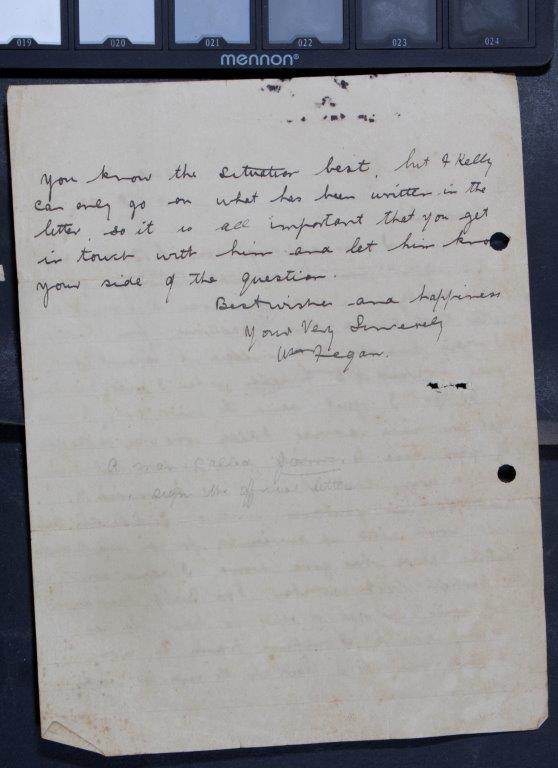 019 020 021 022 023 024
mennon®
you know the situation best, but J Kelly
can only go on what has been written in the
letter, so it is all important that you get
in touch with him and let him know
your side of the question.
Best wishes and happiness
Yours Very Sincerely
Wm Fegan.
A man called
sign the official letter